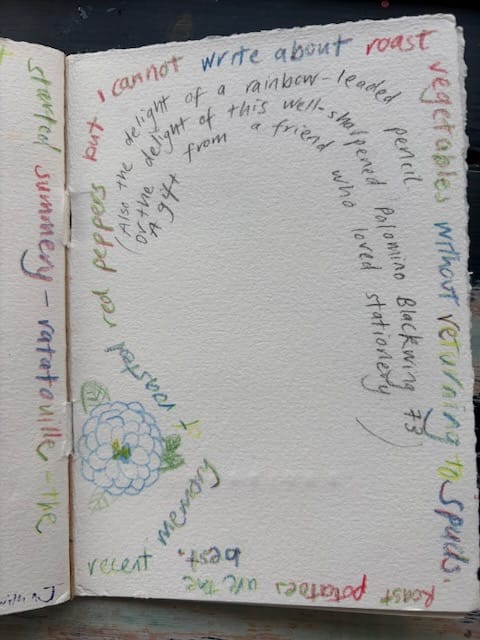 started summery – ratatouille – the
recent memory
roasted red peppers but I cannot write about roast vegetables without returning to spuds.
Roast potatoes are the
best.
(Also the delight of a rainbow-leaded pencil
or the delight of this well-sharpened Palomino Blackwing 73
A gift from a friend who loved stationery)